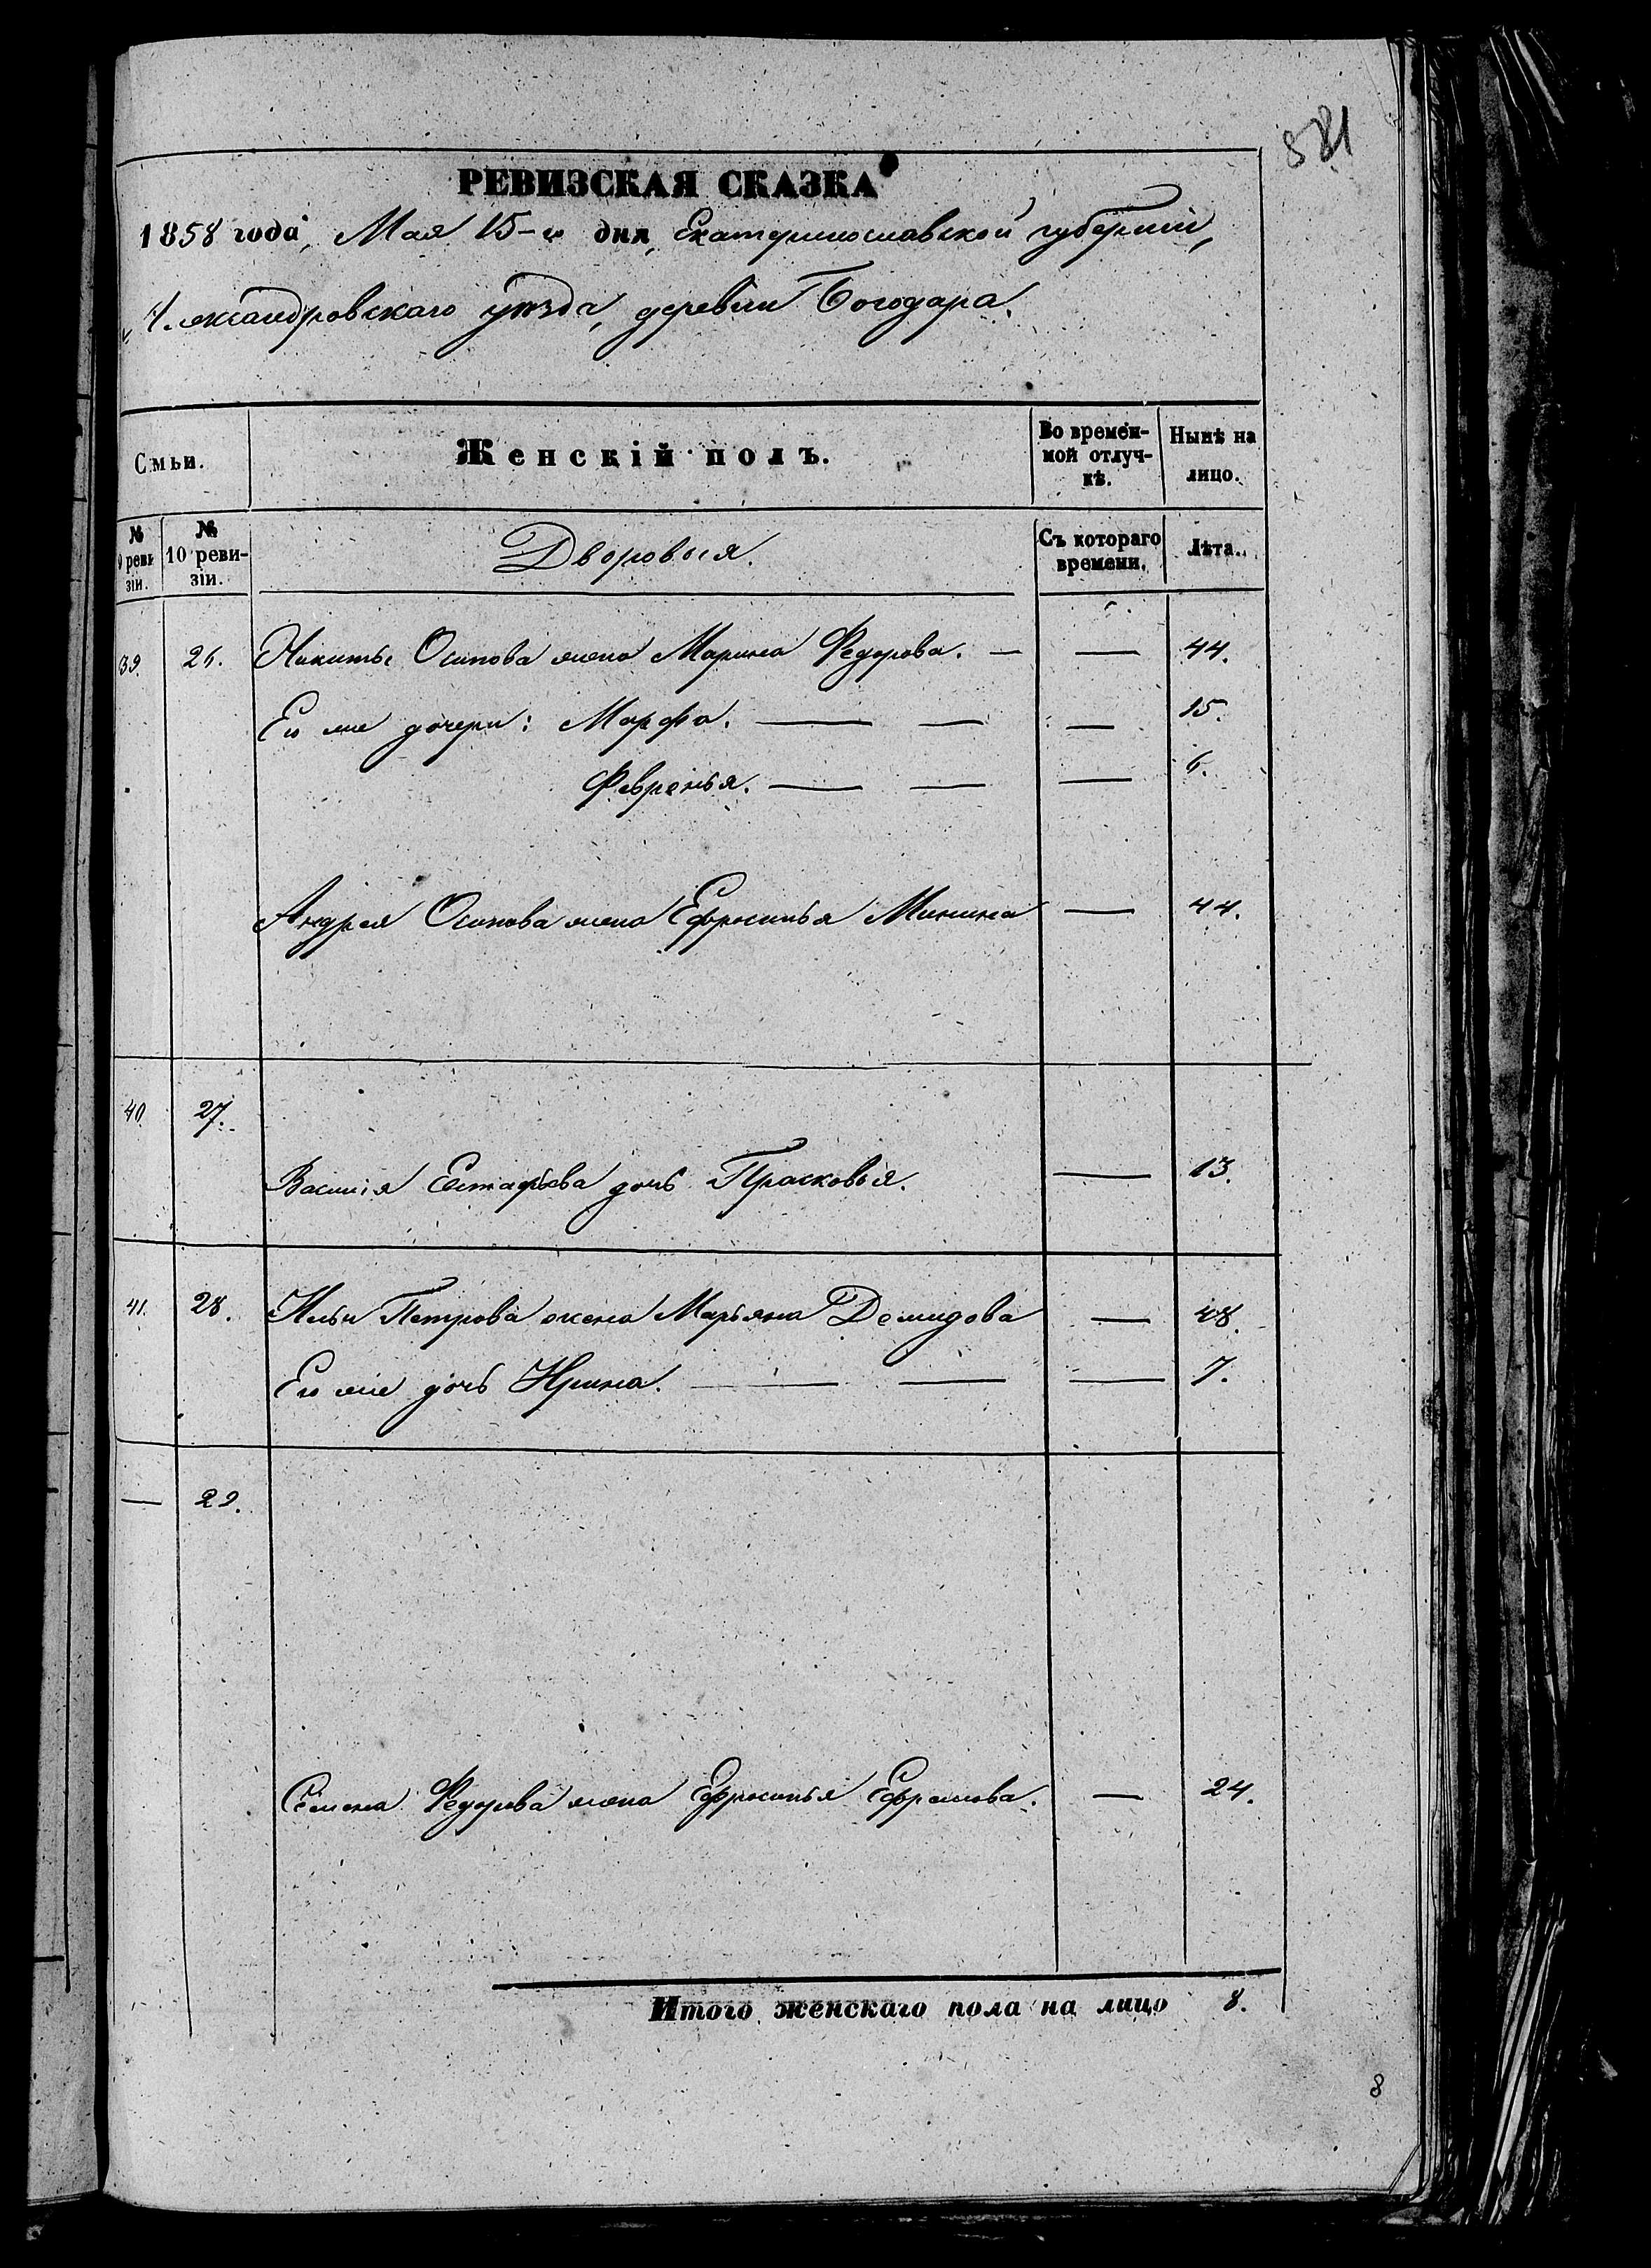 581
РЕВИЗСКАЯ СКАЗКА
1858 года, Мая 15-го дня, Екатеринославской губерніи,
Александровскаго уѣзда, деревни Богодара.
Смьи. Женскій полъ. Во времен-ной отлуч-кѣ. Нынѣ на лицо.
№ 9 реви-зіи. № 10 реви-зіи. Дворовыя. Съ котораго времени. Лѣта.
39. 26. Никиты Осипова жена Марина Федорова. — — 44.
Его же дочери: Марфа. — — — 15.
Февренья. — — — 6.
Андрея Осипова жена Ефросинья Минина — 44.
40. 27.
Василія Естафьева дочь Прасковья. — 13.
41. 28. Ильи Петрова жена Марьяна Демидова — 48.
Его же дочь Ирина. — — — 7.
— 29.
Семена Федорова жена Ефросинья Ефремова. — 24.
Итого женскаго пола на лицо 8.
8